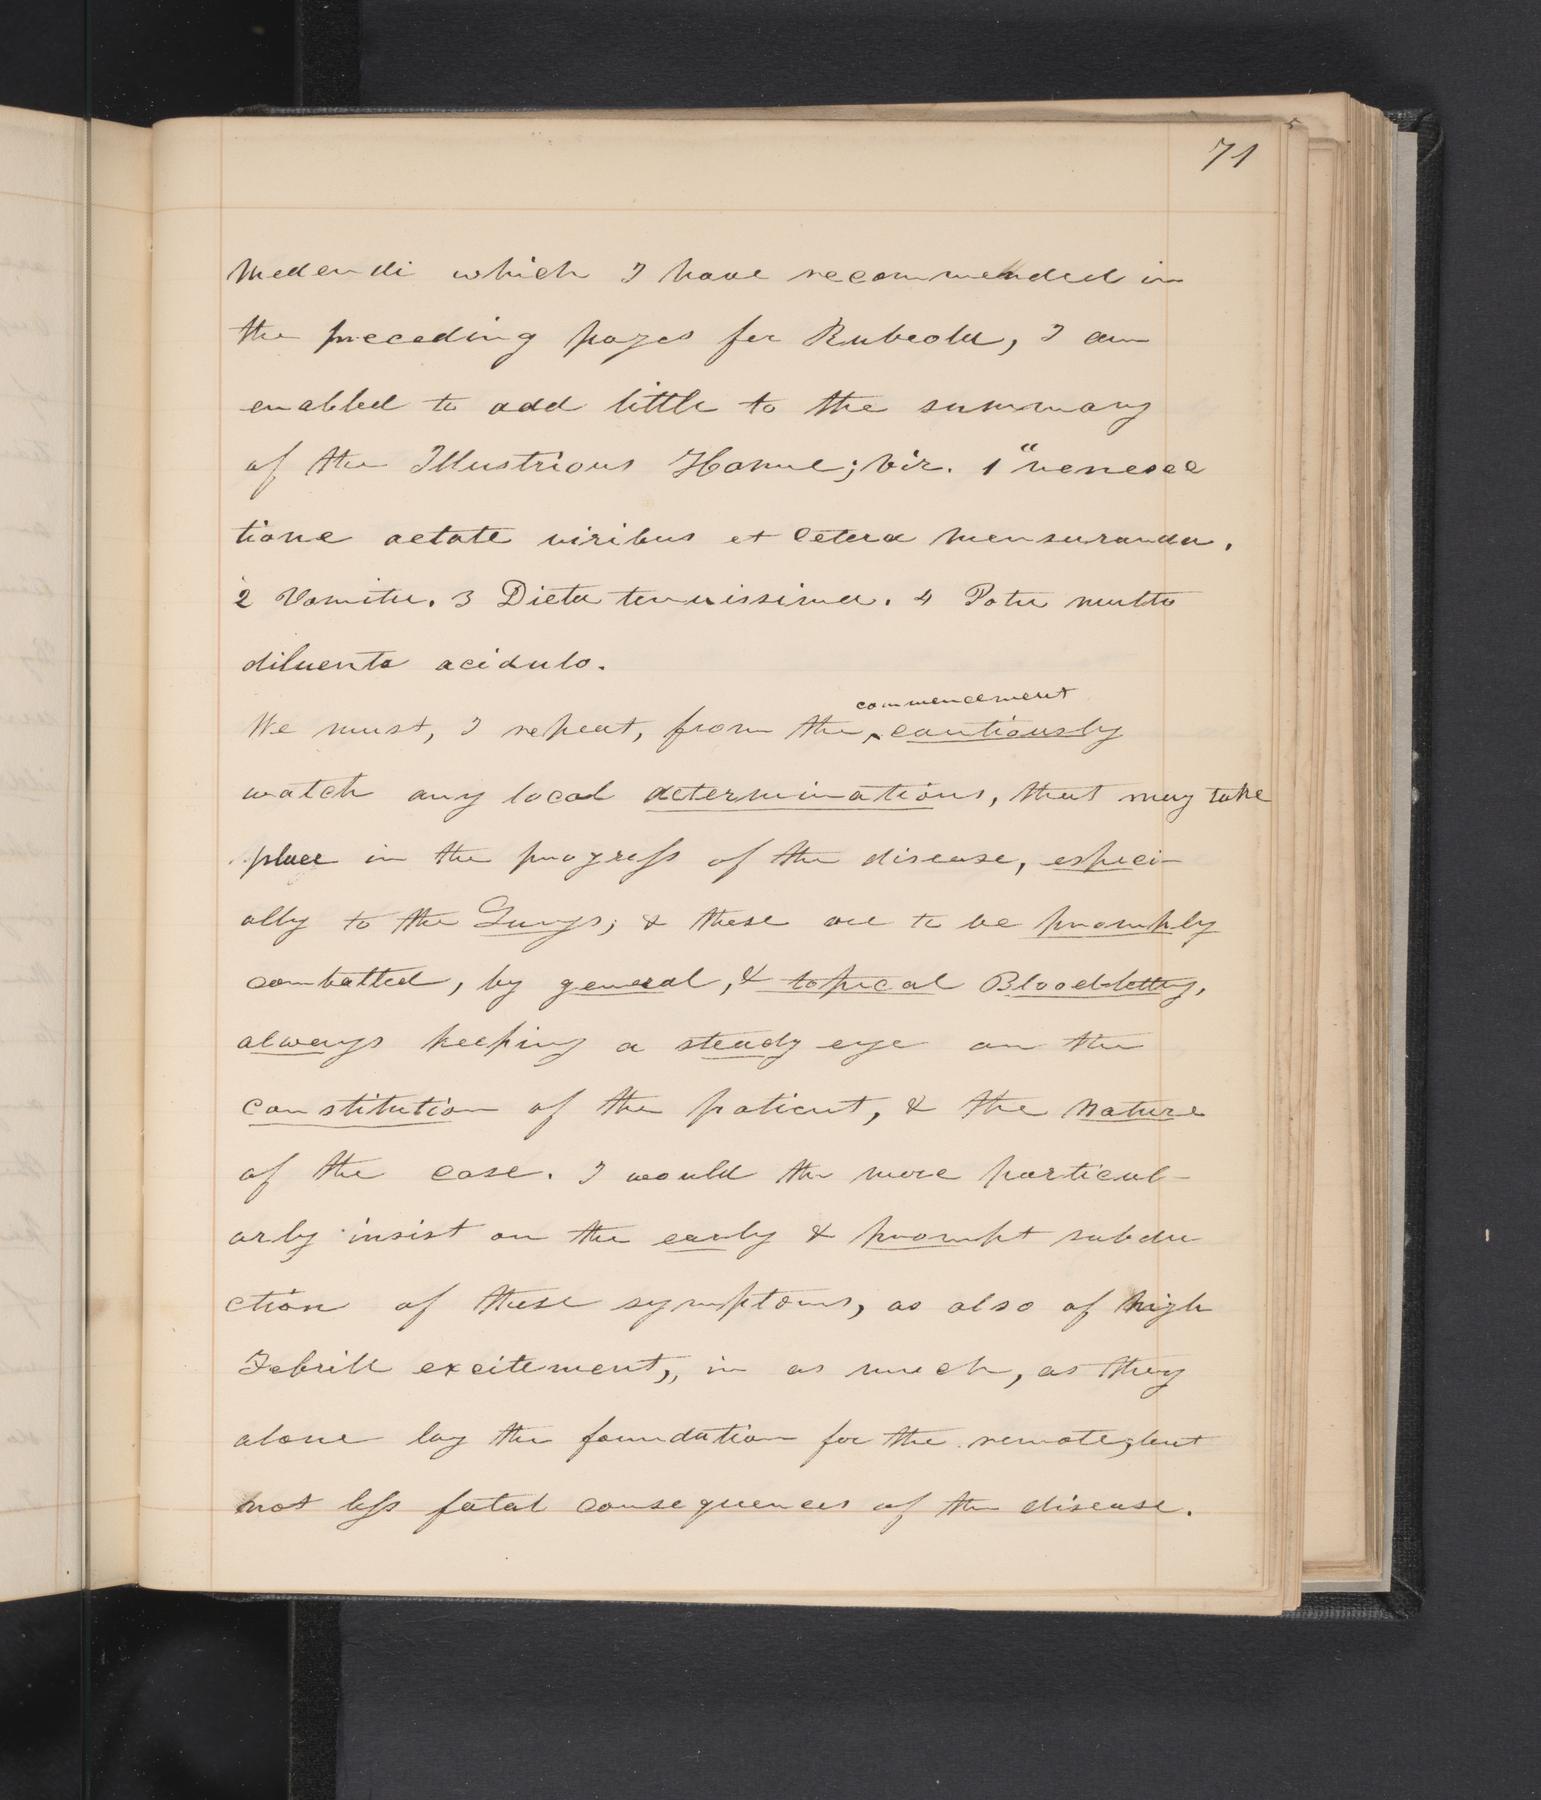 71
Medendi which I have recommended in
the preceding pages for Rubeola, I am
enabled to add little to the summary
of the Illustrious Home; viz. 1 "venesec
tione aetate viribus et cetera mensuranda.
2 Vomitu. 3 Dieta tenuissima. 4 Potu multo
diluento acidulo.
commencement
We must, I repeat, from the ‸ cautiously
watch any local determinations, that may take
place in the progress of the disease, especi-
ally to the Lungs; & these are to be promply
combatted, by general, & topical Bloodletting,
always keeping a steady eye on the
constitution of the patient, & the nature
of the case. I would the more particul-
arly insist on the early & prompt subdu
ction of these symptoms, as also of high
Febrill excitement, in as much, as they
alone lay the foundation for the remote, but
not less fatal consequences of the disease.